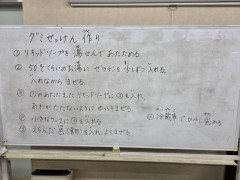 グミせっけん作り
① リキッドソープを湯せんであたためる
② 50℃くらいのお湯にゼラチンを少しずつ入れる
入れながらまぜる
③ ①のあたたまったリキッドソープに②を入れ、
あわがたたないようにゆっくりまぜる
④ 小さなケースに③を入れる
⑤ えらんだ色、香りを入れ、よくまぜる
⑥ 冷蔵庫でひやし固める